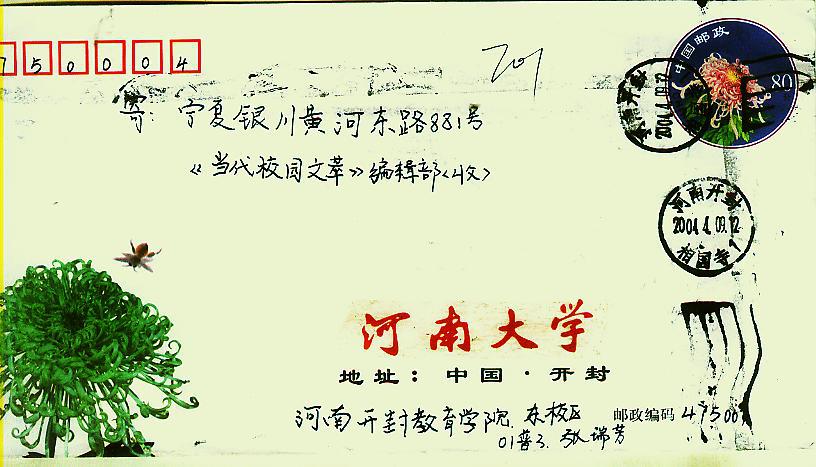 750004
701
中国邮政
80
寄: 宁夏银川黄河东路881号
《当代校园文萃》编辑部<收>
2004.4.09.12
河南开封
2004.4.09.12
相国寺
河南大学
地址: 中国·开封
河南开封教育学院.东校区 邮政编码 47500
张瑞芳